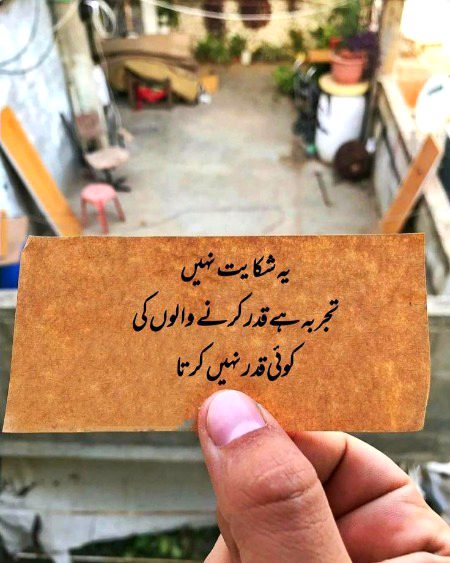 یہ شکایت نہیں
تجربہ ہے قدر کرنے والوں کی
کوئی قدر نہیں کرتا